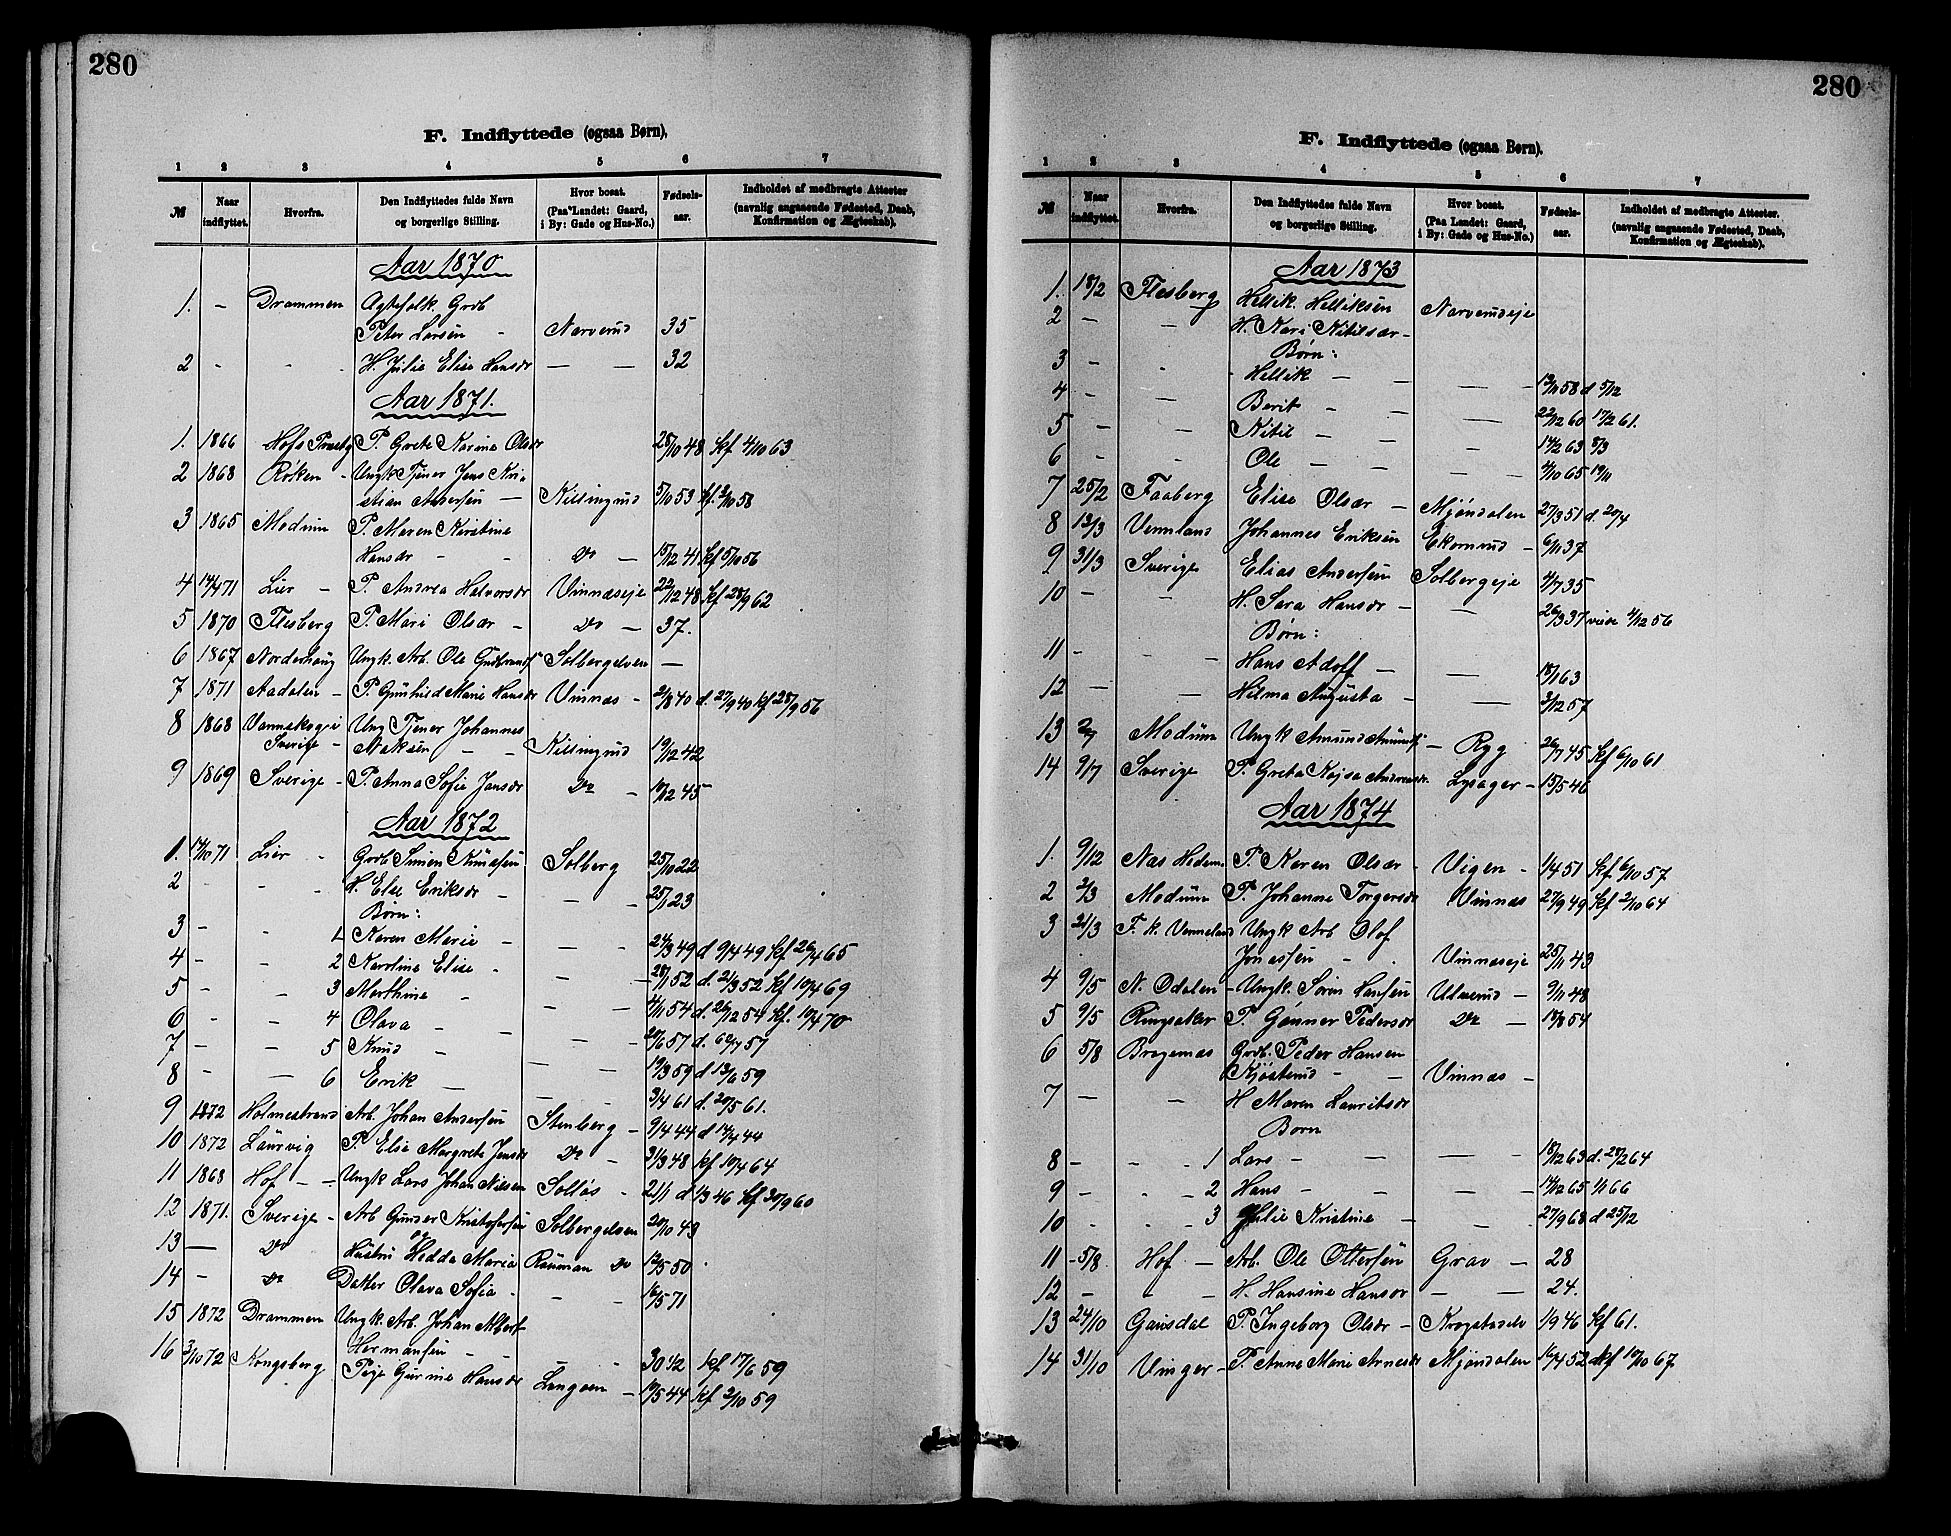 280
F. Indflyttede (ogsaa Børn).
1 2 3 4 5 6 7
№ Naar indflyttet. Hvorfra. Den Indflyttedes fulde Navn og borgerlige Stilling. Hvor bosat. (Paa Landet: Gaard, i By: Gade og Hus-No.) Fødsels-aar. Indholdet af medbragte Attester (navnlig angaaende Fødested, Daab, Konfirmation og Ægteskab).
Aar 1870
1. - Drammen Ægtefolk Grdb
Peter Larsen - Narverud 35
2 - - H. Julie Elise Hansdr — — 32
Aar 1871.
1. 1866 Hofs Præstg P. Grete Karine Olsdr 28/10 48 kf 4/10 63
2 1868 Røken - Ungk Tjener Jens Kri-
stian Andersen — Killingrud 5/10 53 kf. 3/10 58
3 1865 Modum P. Maren Kristine
Hansdr - - Do — 15/12 41 kf 5/10 56
4 14/4 71 Lier - P. Andrea Halvorsdr Vinnæseje 22/12 48 kf 28/9 62
5 1870 Flesberg P. Mari Olsdr - Do — 37.
6 1867 Norderhaug Ungk. Arb. Ole Gudbrands Solbergelven —
7 1871 Aadalen - P. Gunhild Marie Hansdr Vinnæs - 2/8 40 d. 27/9 40 kf 28/9 56
8 1868 Vanneskogje Ung Tjener Johannes
Sverige - Isaksen - - Killingrud 19/12 42
9 1869 Sverige - P. Anna Sofie Jansdr Do - 10/12 45
Aar 1872
1. 14/10 71 Lier - Grdb Simen Knudsen Solberg 25/10 22
2 - - H. Else Eriksdr - - - 25/1 23
Børn:
3 - - 1 Karen Marie - - - 24/3 49 d 9/4 49 kf 26/4 65
4 - - 2 Karoline Elise - - 28/1 52 d. 21/3 52 kf 10/4 69
5 - - 3 Marthine - - - 4/11 54 d. 26/12 54 kf. 10/4 70
6 - - 4 Olava - - - - 20/6 57 d. 60/7 57
7 - - 5 Knud - - - 19/3 59 d 13/6 59
8 - — 6 Erik — - - 3/4 61 d. 20/5 61.
9 1872 Holmestrand Arb. Johan Andersen Stenberg - 9/4 44 d 14/4 44
10 1872 Laurvig P. Elise Margrete Jensdr Do - 31/3 48 kf 10/4 64
11 1868 Hof - - Ungk Lars Johan Nilsen Solløs - 21/1 d 1/3 46 kf 30/9 60
12 1871. Sverige - Arb Gunder Kristofersen Solbergelven 20/10 43
13 — Do Hustru Hedda Maria Rauman Do 10/5 50
14 - Do Datter Olava Sofia - - - 16/5 71
15 1872 Drammen Ungk. Arb. Johan Albert
Hermansen - - - - 30 1/2 kf 17/6 59
16 3/10 72 Kongsberg Pige Gurine Hansdr Langøen - 10/5 44 kf 2/10 59
280
F. Indflyttede (ogsaa Børn).
1 2 3 4 5 6 7
№ Naar indflyttet. Hvorfra. Den Indflyttedes fulde Navn og borgerlige Stilling. Hvor bosat. (Paa Landet: Gaard, i By: Gade og Hus-No.) Fødsels-aar. Indholdet af medbragte Attester. (navnlig angaaende Fødested, Daab, Konfirmation og Ægteskab).
Aar 1873
1. 18/2 Flesberg Hellik Helliksen Narverudeje
2 - — H. Kari Nitilsdr -
Børn:
3 - - - Hellik — - — 12/11 58 d 5/12
4 - - Berit - - — 22/12 60 17/2 61.
5 - - Kitil - - — 14/2 63 8/3
6 - - Ole - - — 4/10 65 19/11
7 25/2 Faaberg Elise Olsdr - Mjøndalen 27/3 51 d. 20/4
8 13/3 Vermland Johannes Eriksen Ekornrud - 6/11 37
9 31/3 Sverige Elias Andersen Solbergeje 4/7 35
10 - - H. Sara Hansdr - — 26/3 37 viede 4/12 56
Børn:
11 - - - Hans Adolf — 18/1 63
12 - - Hilma Augusta - — 3/12 57
13 2/7 Modum Ungk Amund Amunds - Ryg 26/7 45 kf 6/10 61
14 9/7 Sverige P. Greta Kajsa Andreasdr. Lysager - 15/5 46
Aar 1874
1. 9/12 Næs Hedem. P. Karen Olsdr - Vigen - 1/4 51 kf 6/10 57
2 2/3 Modum P. Johanne Torgersdr Vinnæs 27/9 49 kf 2/10 64
3 21/3 F. k. Vermeland Ungk Arb Olof
Jonassen - - Vinnæseje 25/11 43
4 9/5 N. Odalen - Ungk. Søren Hansen Ulverud - 9/11 48
5 9/5 Ringsaker P. Gunner Pedersdr Do — 18/8 54
6 5/8 Bragernæs Grdb. Peder Hansen
Kjøsterud - - Vinnæs -
7 — - H Maren Lauritsdr
Børn
8 - - - 1 Lars - - - — 18/12 63 d. 28/2 64
9 - - - 2 Hans - - — 14/12 65 1/1 66
10 - - 3 Julie Kristine - - 27/9 68 d 25/12
11 - 5/8. Hof - Arb. Ole Ottersen Grav - 28
12 - - H. Hansine Hansdr - - 24.
13 24/10 Gausdal P. Ingeborg Olsdr - Krogstadelv 1/9 46 kf 61.
14 31/10 Vinger - P. Anne Marie Arnesdr Mjøndalen 16/4 52 kf 10/10 67